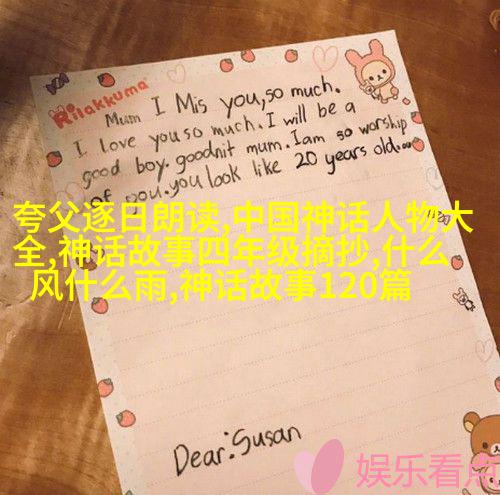 Rilakkuma
Mum I Mis you,so much.
I love you so much. I will be a
good boy. goodnit mum. I am so worship
of you. you look like 20 years old.
夸父逐日朗读,中国神话人物大
全,神话故事四年级摘抄,什么
风什么雨,神话故事120篇
Dear:Susan
娱乐看点